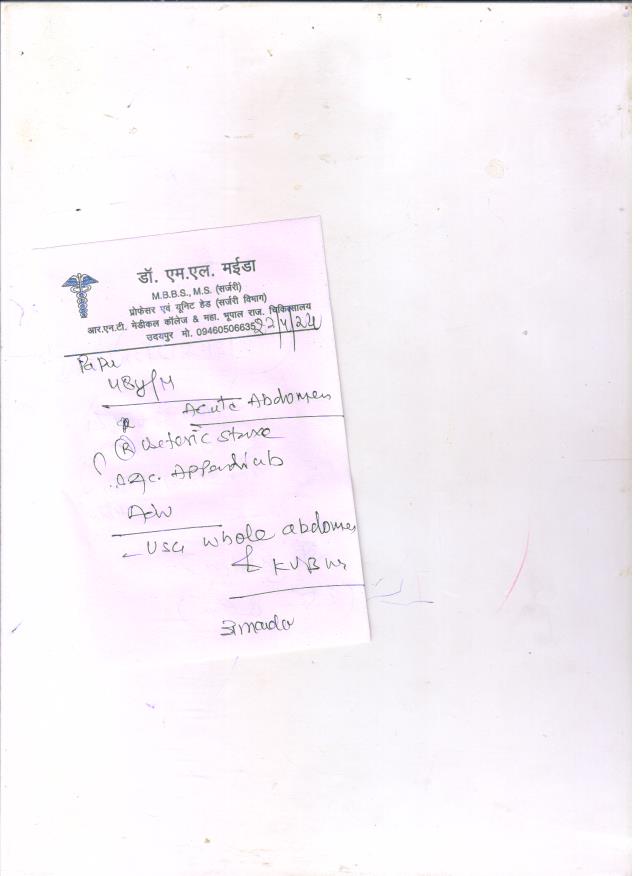 डॉ. एम.एल. मईडा
M.B.B.S., M.S. (सर्जरी)
प्रोफेसर एवं यूनिट हेड (सर्जरी विभाग)
आर.एन.टी. मेडीकल कॉलेज & महा. भूपाल राज. चिकित्सालय
उदयपुर मो. 09460506635
Acute Abdomen
R Ureteric Stone
Adv
USG whole abdomen
& KUB